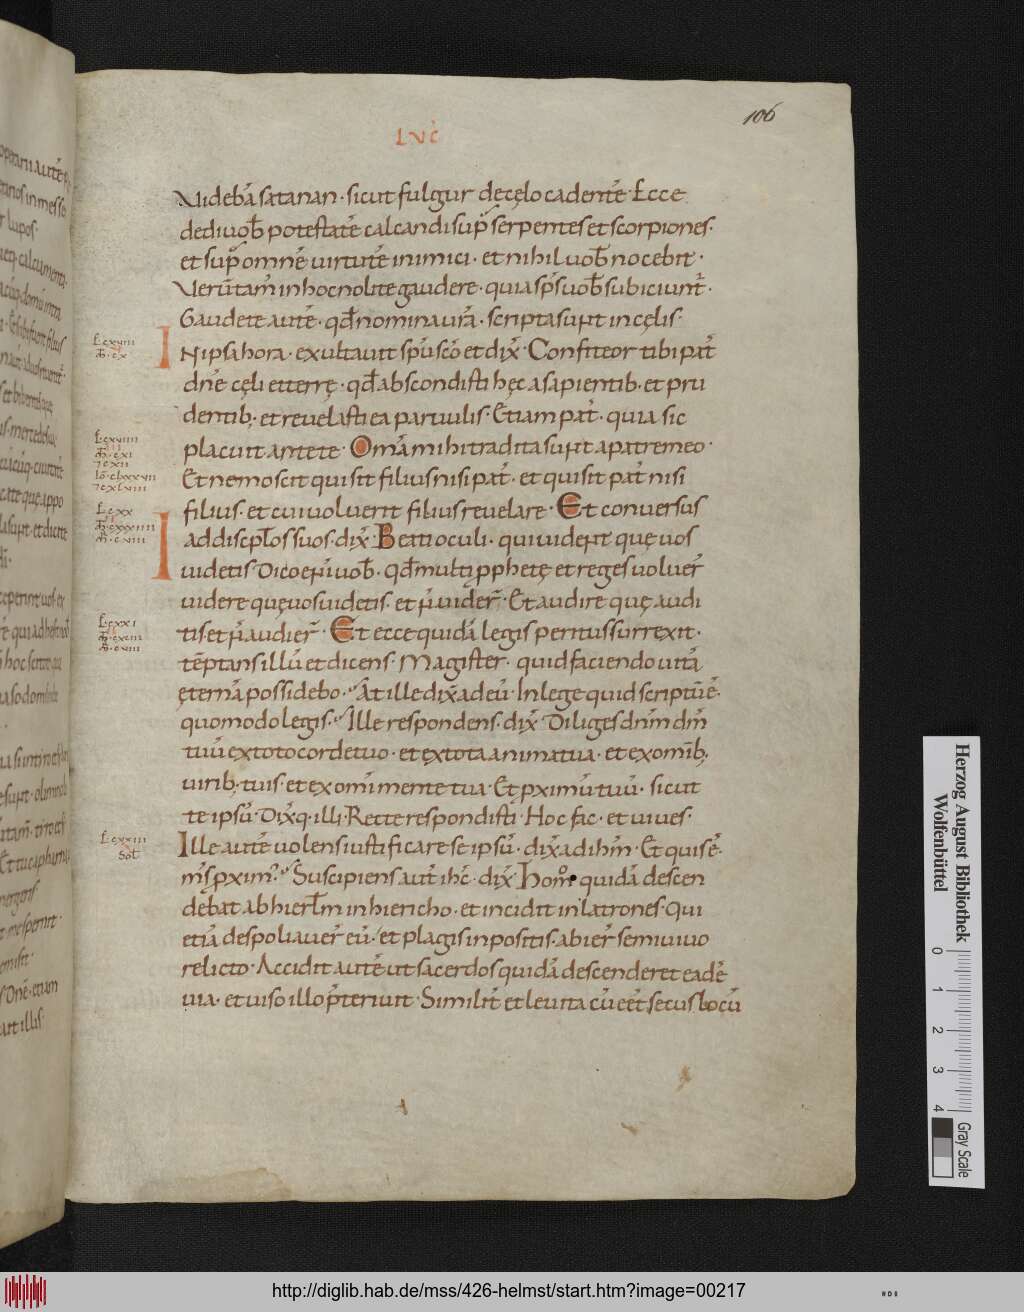 106
LVC̄
Videbā satanan · sicut fulgur dęcęlo cadentē · Ecce
dedi uob̄ potestatē calcandi sup̄ serpentes et scorpiones ·
et sup̄ omnē uirtutē inimici · et nihil uob̄ nocebit ·
Verūtam̄ in hoc nolite gaudere · quia sp̄s uob̄ subiciunt̄ ·
Gaudete autē · qd̄ nomina ur̄a · scripta sunt in cęlis ·
IN ipsa hora · exultauit sp̄u sc̄o et dix̄ · Confiteor tibi pat̄
dn̄e cęli et terrę · qd̄ abscondisti hęc a sapientib; et pru
dentib; et reuelasti ea paruulis · Etiam pat̄ · quia sic
placuit ante te · Om̄a mihi tradita sunt a patre meo ·
Et nemo scit qui sit filius nisi pat̄ · et qui sit pat̄ nisi
filius · et cui uoluerit filius reuelare · Et conuersus
ad discip̄los suos · dix̄ · Beati oculi · qui uident quę uos
uidetis · Dico eni̅ uob̄ · qd̄ multi pphetę et reges uoluer̄
uidere quę uos uidetis · et n̄ uider̄ · Et audire quę audi
tis et n̄ audier̄ · Et ecce quidā legis peritus surrexit ·
tēptans illū et dicens · Magister · quid faciendo uitā
ęternā possidebo · At ille dix̄ ad eū · In lege quid scriptū ē ·
quomodo legis · Ille respondens · dix̄ · Diliges dn̄m dm̄
tuū ex toto corde tuo · et ex tota anima tua · et ex omīb;
uirib; tuis · et ex omī mente tua · Et pximū tuū · sicut
te ipsū · Dix̄q· illi · Recte respondisti · Hoc fac · et uiues ·
Ille autē uolens iustificare se ipsū · dix̄ ad ih̄m · Et quis ē ·
m̄s pxim᾿ · Suscipiens aut̄ ih̄c · dix̄ · Homo quidā descen
debat ab hierl̄m in hiericho · et incidit in latrones · Qui
etiā despoliauer̄ eū · et plagis inpositis · abier̄ semiuiuo
relicto · Accidit autē ut sacerdos quidā descenderet eadē
uia · et uiso illo p̄teriuit · Similit̄ et leuita cū eēt secus locū
Herzog August Bibliothek
Wolfenbüttel
0 1 2 3 4
Gray Scale
http://diglib.hab.de/mss/426-helmst/start.htm?image=00217